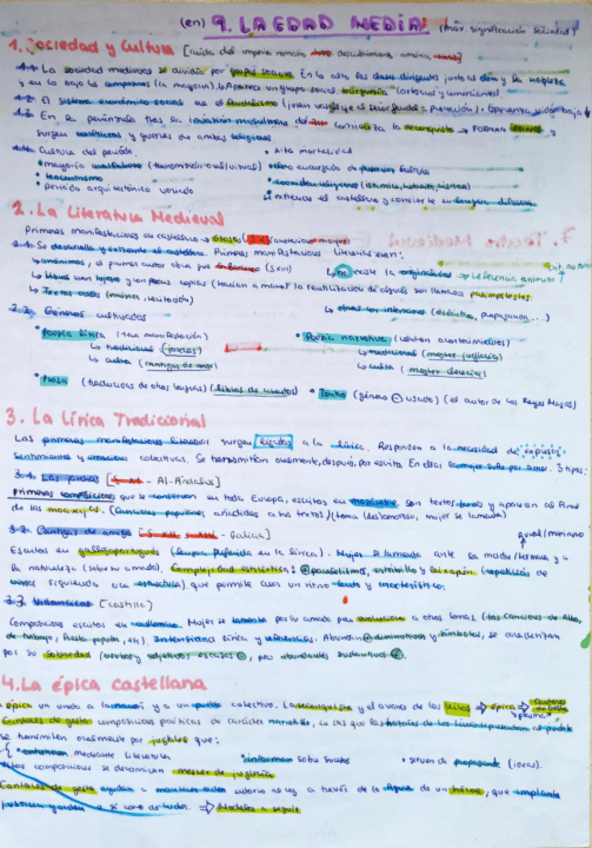 (en) 9. LA EDAD MEDIA! (max. significación sociedad)
1. Sociedad y Cultura [caída del imperio romano descubrimiento américa
1.1. La sociedad medieval se dividía por grupos sociales. En lo alto, las clases dirigentes junto al clero y la nobleza
y en lo bajo los campesinos (la mayoría). Aparece un grupo social, burguesía (artesanos y comerciantes).
1.2. El sistema económico social era el feudalismo
1.3. En la península tras la invasión musulmana comienza la reconquista → FORMAN REINOS y
surgen conflictos y guerras de ambas religiones.
1.4. Cultura del período.
• mayoría analfabeta (transmisión oral/visual)
• teocentrismo
• período arquitectónico variado
• Alta mortalidad
• clero encargado de cultura
se extiende el castellano y convierte en lengua
2. La Literatura Medieval
Primeras manifestaciones en castellano → glosas
2.1. Se desarrolla y extiende el castellano. Primeras manifestaciones literarias eran:
↳ anónimas, el primer autor
↳ no existe la originalidad
↳ Libros con copias (hacían a mano) la reutilización de algunos son llamados palimpsestos.
↳ Textos orales (música, recitación)
↳ otras con intención (didáctica, propaganda...)
2.2. Géneros cultivados
• Poesía lírica (1era manifestación)
↳ tradicional (jarchas)
↳ culta (cantigas de amor)
• Poesía narrativa (cuentan acontecimientos)
↳ tradicional (mester juglaría)
↳ culta (mester clerecía)
• Prosa (traducciones de otras lenguas) (libros de cuentos)
• Teatro (género ⊖ usado) (el autor de los Reyes Magos)
3. La Lírica Tradicional
Las primeras manifestaciones literarias surgen ligadas a la lírica. Responden a la necesidad de expresar
sentimientos y emociones colectivas. Se transmitían oralmente, después, por escrito. En ellas la mujer sufre por amor. 3 tipos:
3.1. Las jarchas [ - Al-Ándalus]
primeras composiciones que se conservan en toda Europa, escritas en mozárabe. Son textos breves y aparecen al final
de las moaxajas. (Canciones populares añadidas a los textos) / (tema desamoroso, mujer se lamenta)
3.2. Cantigas de amigo [ - Galicia]
Escritas en galaicoportugués (lengua preferida en la lírica). Mujer se lamenta ante la madre/hermana y a
la naturaleza (sobre su amado). Complejidad estilística: ⊕ paralelismos, estribillo y leixaprén (repetición de
versos siguiendo una estructura), que permite crear un ritmo lento y
3.3. Villancicos [castilla]
Composiciones escritas en castellano. Mujer se lamenta por su amado pero evoluciona a otros temas (las Canciones de Alba,
de trabajo, fiesta populares, etc). Intensidad lírica y vehemencia. Abundan ⊕ diminutivos y símbolos, se caracterizan
por su sobriedad (verbos y adjetivos escasos ⊖), pero abundantes sustantivos ⊕.
4. La épica castellana
épica va unido a la y a un pueblo colectivo. La reconquista y el avance de los reinos ⇒ épica ⇒ Cantares de Gesta
Cantares de gesta composiciones poéticas de carácter narrativo, en las que las hazañas de los
se transmiten oralmente por juglares que:
• entretenían mediante literatura
• informan sobre sucesos
• sirven de propaganda (ideas).
estas composiciones se denominan mester de juglaría
Cantares de gesta ayudan a a través de la figura de un héroe, que implanta
justicia y orden a sí como de todos. ⇒ Modelos a seguir